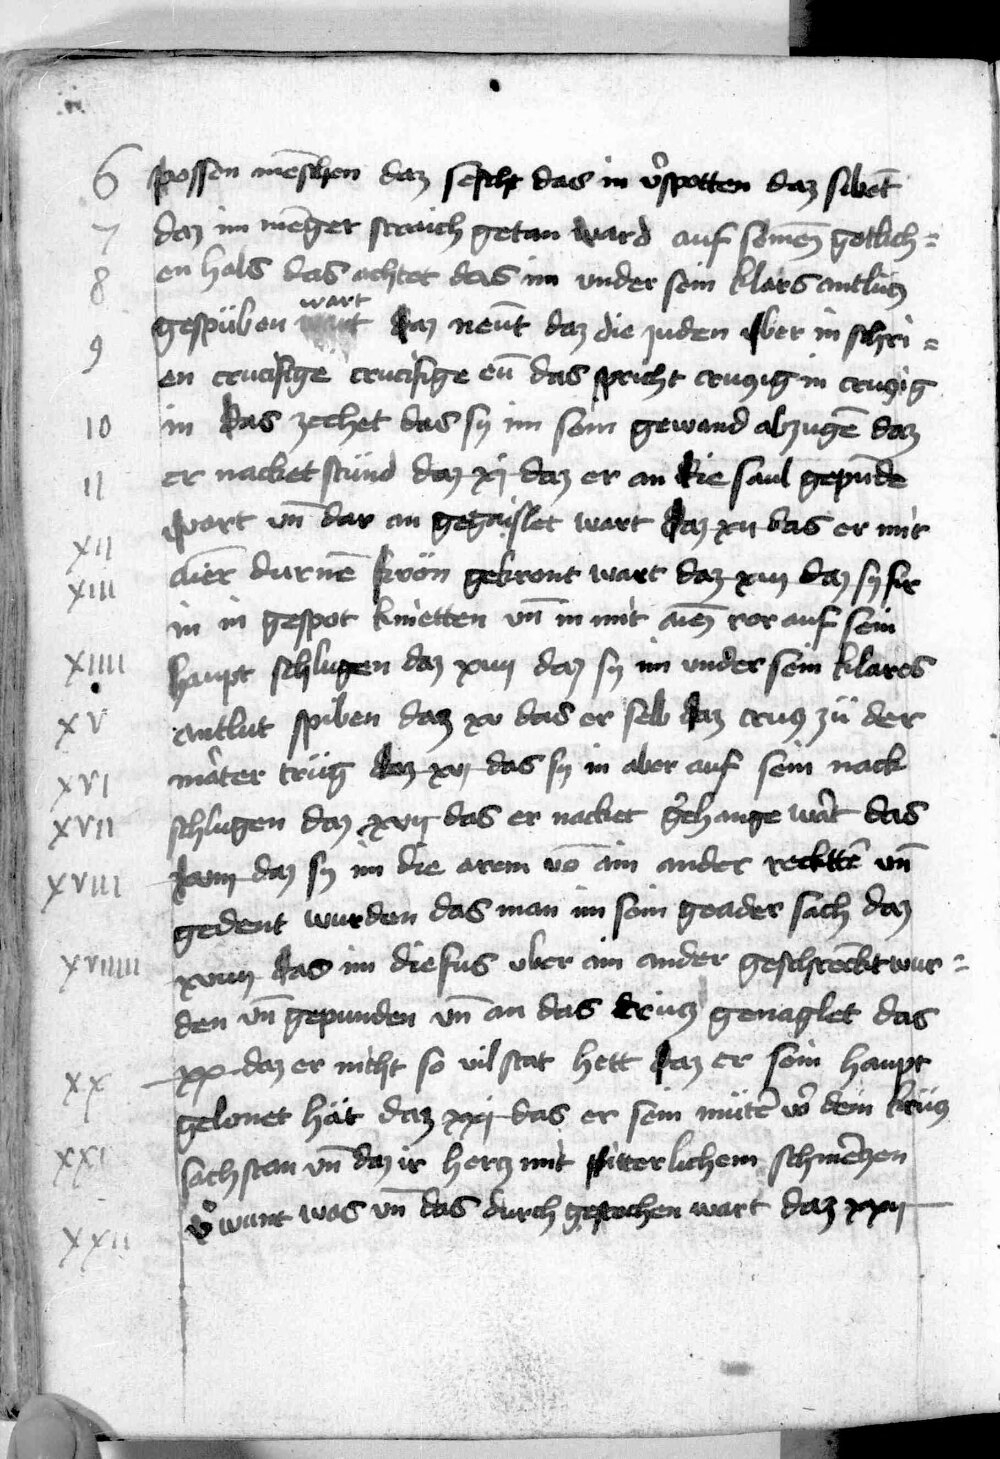 6 possen mēschen daz sechst das in v̉spotten daz sibēt
7 daz im mēger straich getan ward auf seinē gotlich=
8 en hals das achtet das im under sein klars antlucz
gespüben wart daz neūt daz die juden vber in schri=
9 en crucifige crucifige eū das spricht cruczig in cruczig
10 in das zechet das sy im sein gewand abzugē daz
11 er nacket stünd daz xj daz er an die saul gepūde
wart vn̄ dar an gegaislet wart daz xii das er mit
XII ainer durnē krön gekront wart daz xiij daz sy fir
XIII in in gespot knietten vn̄ in mit ainē ror auf sein
XIIII haupt schlugen daz xiiij daz sy im under sein klares
XV antlut spiben daz xv das er selb daz crucz zü der
XVI mater trüg daz xvj das sy in aber auf sein nack
XVII schlugen daz xvij das er nacket gehange wart das
XVIII xviij daz sy im die arem vō ain ander recktē vn̄
gedent wurden das man im sein geader sach daz
XVIIIII xviiij das im die fus vber ain ander geschreckt wur=
den vn̄ gepunden vn̄ an das crucz genaglet das
XX xx daz er nicht so vil stat hett daz er sein haupt
gelonet hät daz xxj das er sein mütē vō dem krücz
XXI sach stan vn̄ daz ir hercz mit pitterlichem schmērczen
v̉ wunt was vn̄ das durch gestochen wart daz xxij
XXII